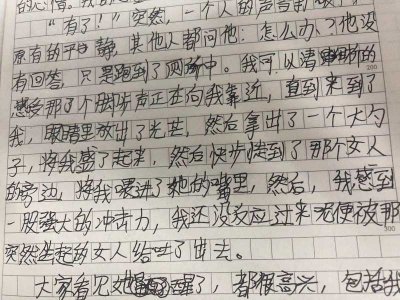 的心情。我
"有了!"突然,一个人的声音
原有的平静,其他人都问他:怎么办?他没
有回答,只是跑到了厕所中。我可以清晰的
200
感受那了个脚步声正在向我靠近,直到来到了
我,眼睛里放出了光芒,然后拿出了一个大勺
子,将我盛了起来,然后快步走到了那个女人
的旁边,将我喂进了她的嘴里,然后,我感到
一股强大的冲击力,我还没反应过来泥便被那
300
突然坐起的女人给吐了出去。
大家看见她醒了,都很高兴,包括我